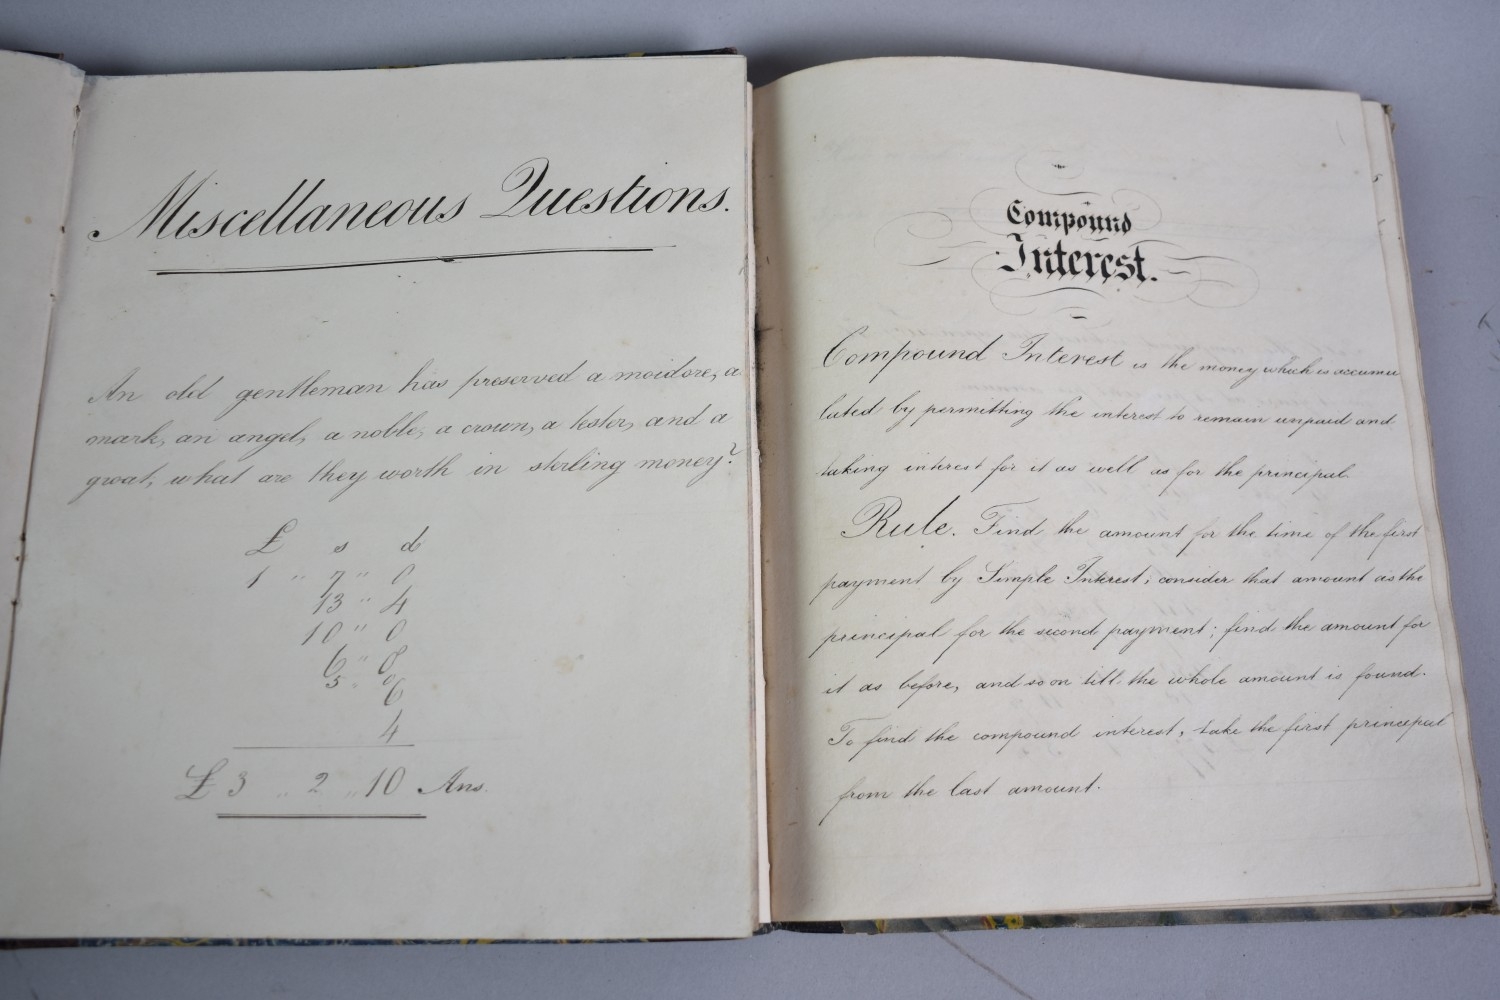 Miscellaneous Questions.
An old gentleman has preserved a moidore, a
mark, an angel, a noble, a crown, a tester, and a
groat, what are they worth in sterling money?
£ s d
1 " 7 " 0
13 " 4
10 " 0
6 " 8
5 " 0
6
4
£ 3 " 2 " 10 Ans.
Compound
Interest.
Compound Interest is the money which is accumu
lated by permitting the interest to remain unpaid and
taking interest for it as well as for the principal.
Rule. Find the amount for the time of the first
payment by Simple Interest, consider that amount as the
principal for the second payment; find the amount for
it as before, and so on till the whole amount is found.
To find the compound interest, take the first principal
from the last amount.